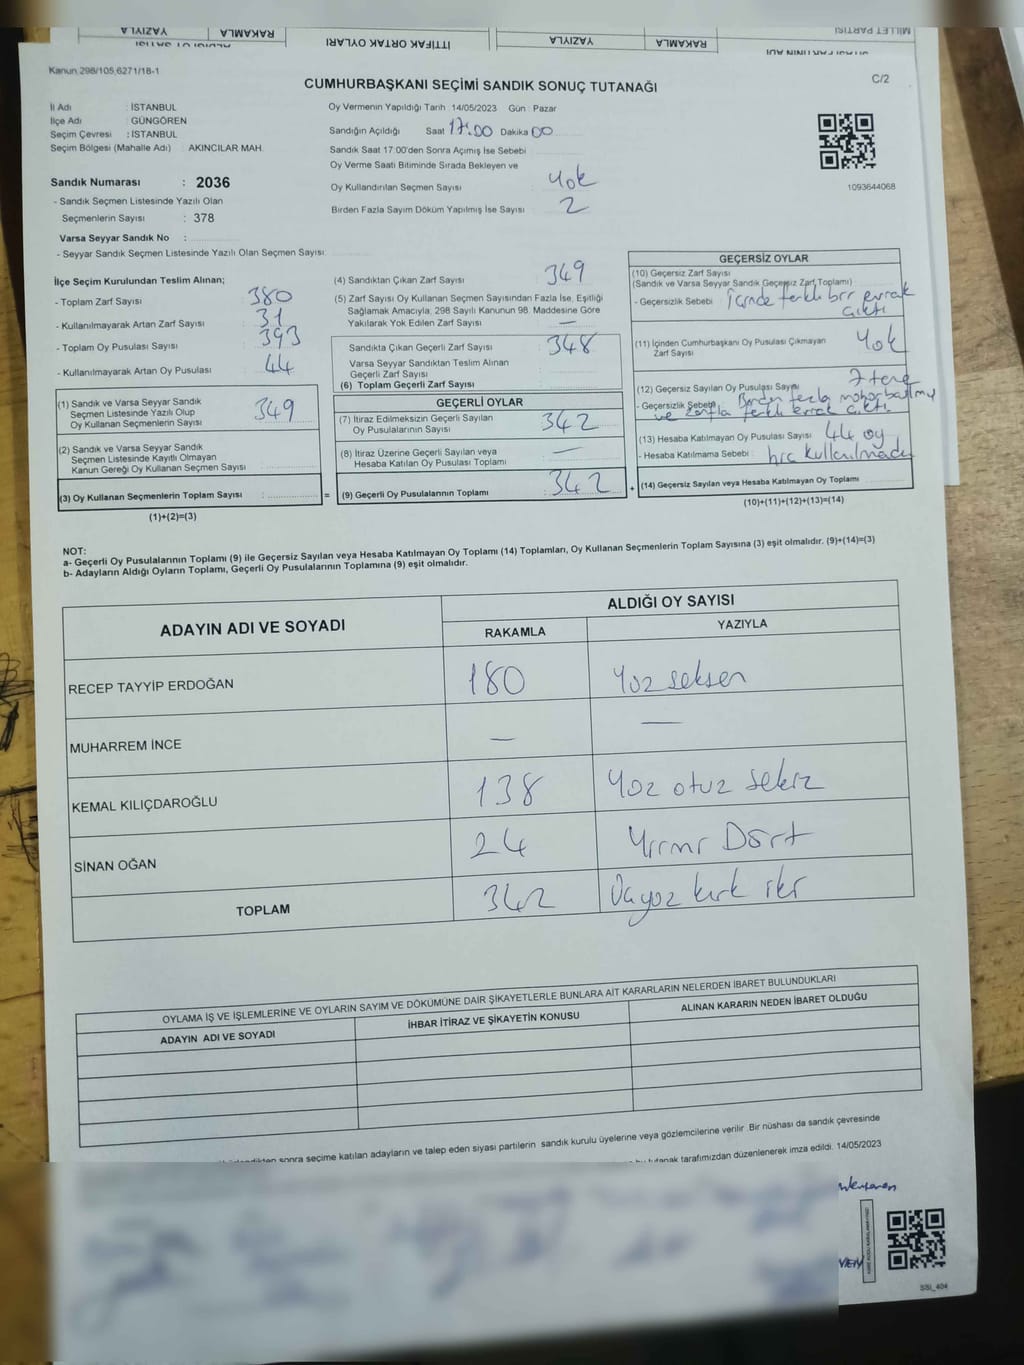 YAZIYLA
RAKAMLA
İTTİFAK ORTAK OYLARI
YAZIYLA
RAKAMLA
MİLLET PARTİSİ
Kanun 298/105,6271/18-1
CUMHURBAŞKANI SEÇİMİ SANDIK SONUÇ TUTANAĞI
C/2
İl Adı : İSTANBUL
İlçe Adı : GÜNGÖREN
Seçim Çevresi : İSTANBUL
Seçim Bölgesi (Mahalle Adı) : AKINCILAR MAH.
Oy Vermenin Yapıldığı Tarih :14/05/2023 Gün : Pazar
Sandığın Açıldığı Saat 17:00 Dakika 00
Sandık Saat 17:00'den Sonra Açımış İse Sebebi
Oy Verme Saati Bitiminde Sırada Bekleyen ve
Oy Kullandırılan Seçmen Sayısı Yok
Birden Fazla Sayım Döküm Yapılmış İse Sayısı 2
1093644068
Sandık Numarası : 2036
- Sandık Seçmen Listesinde Yazılı Olan
Seçmenlerin Sayısı : 378
Varsa Seyyar Sandık No :
- Seyyar Sandık Seçmen Listesinde Yazılı Olan Seçmen Sayısı:
İlçe Seçim Kurulundan Teslim Alınan;
- Toplam Zarf Sayısı 380
- Kullanılmayarak Artan Zarf Sayısı 31
- Toplam Oy Pusulası Sayısı 393
- Kullanılmayarak Artan Oy Pusulası 44
(1) Sandık ve Varsa Seyyar Sandık
Seçmen Listesinde Yazılı Olup
Oy Kullanan Seçmenlerin Sayısı 349
(2) Sandık ve Varsa Seyyar Sandık
Seçmen Listesinde Kayıtlı Olmayan
Kanun Gereği Oy Kullanan Seçmen Sayısı
(3) Oy Kullanan Seçmenlerin Toplam Sayısı : =
(1)+(2)=(3)
(4) Sandıktan Çıkan Zarf Sayısı 349
(5) Zarf Sayısı Oy Kullanan Seçmen Sayısından Fazla İse, Eşitliği
Sağlamak Amacıyla; 298 Sayılı Kanunun 98. Maddesine Göre
Yakılarak Yok Edilen Zarf Sayısı —
Sandıkta Çıkan Geçerli Zarf Sayısı 348
Varsa Seyyar Sandıktan Teslim Alınan
Geçerli Zarf Sayısı
(6) Toplam Geçerli Zarf Sayısı
GEÇERLİ OYLAR
(7) İtiraz Edilmeksizin Geçerli Sayılan
Oy Pusulalarının Sayısı 342
(8) İtiraz Üzerine Geçerli Sayılan veya
Hesaba Katılan Oy Pusulası Toplamı —
(9) Geçerli Oy Pusulalarının Toplamı 342 +
GEÇERSİZ OYLAR
(10) Geçersiz Zarf Sayısı
(Sandık ve Varsa Seyyar Sandık Geçersiz Zarf Toplamı)
- Geçersizlik Sebebi İçinde farklı bir evrak
çıktı
(11) İçinden Cumhurbaşkanı Oy Pusulası Çıkmayan
Zarf Sayısı Yok
(12) Geçersiz Sayılan Oy Pusulası Sayısı 7 tane
- Geçersizlik Sebebi Birden fazla mühür basılmış
ve zarfla farklı evrak çıktı
(13) Hesaba Katılmayan Oy Pusulası Sayısı 44 oy
- Hesaba Katılmama Sebebi : hiç kullanılmadı
(14) Geçersiz Sayılan veya Hesaba Katılmayan Oy Toplamı
(10)+(11)+(12)+(13)=(14)
NOT:
a- Geçerli Oy Pusulalarının Toplamı (9) ile Geçersiz Sayılan veya Hesaba Katılmayan Oy Toplamı (14) Toplamları, Oy Kullanan Seçmenlerin Toplam Sayısına (3) eşit olmalıdır. (9)+(14)=(3)
b- Adayların Aldığı Oyların Toplamı, Geçerli Oy Pusulalarının Toplamına (9) eşit olmalıdır.
ADAYIN ADI VE SOYADI
ALDIĞI OY SAYISI
RAKAMLA
YAZIYLA
RECEP TAYYİP ERDOĞAN 180 Yüz seksen
MUHARREM İNCE — —
KEMAL KILIÇDAROĞLU 138 Yüz otuz sekiz
SİNAN OĞAN 24 Yirmi Dört
TOPLAM 342 Üçyüz kırk iki
OYLAMA İŞ VE İŞLEMLERİNE VE OYLARIN SAYIM VE DÖKÜMÜNE DAİR ŞİKAYETLERLE BUNLARA AİT KARARLARIN NELERDEN İBARET BULUNDUKLARI
ADAYIN ADI VE SOYADI
İHBAR İTİRAZ VE ŞİKAYETİN KONUSU
ALINAN KARARIN NEDEN İBARET OLDUĞU
sonra seçime katılan adayların ve talep eden siyasi partilerin sandık kurulu üyelerine veya gözlemcilerine verilir .Bir nüshası da sandık çevresinde
tutanak tarafımızdan düzenlenerek imza edildi. 14/05/2023
SSI_404